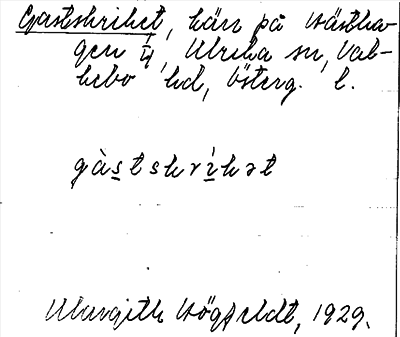 Gastskriket, kärr på Hästha-
gen 1/4, Ulrika sn, Val-
kebo hd, Österg. l.
gàstskríkət
Margith Högfeldt, 1929.